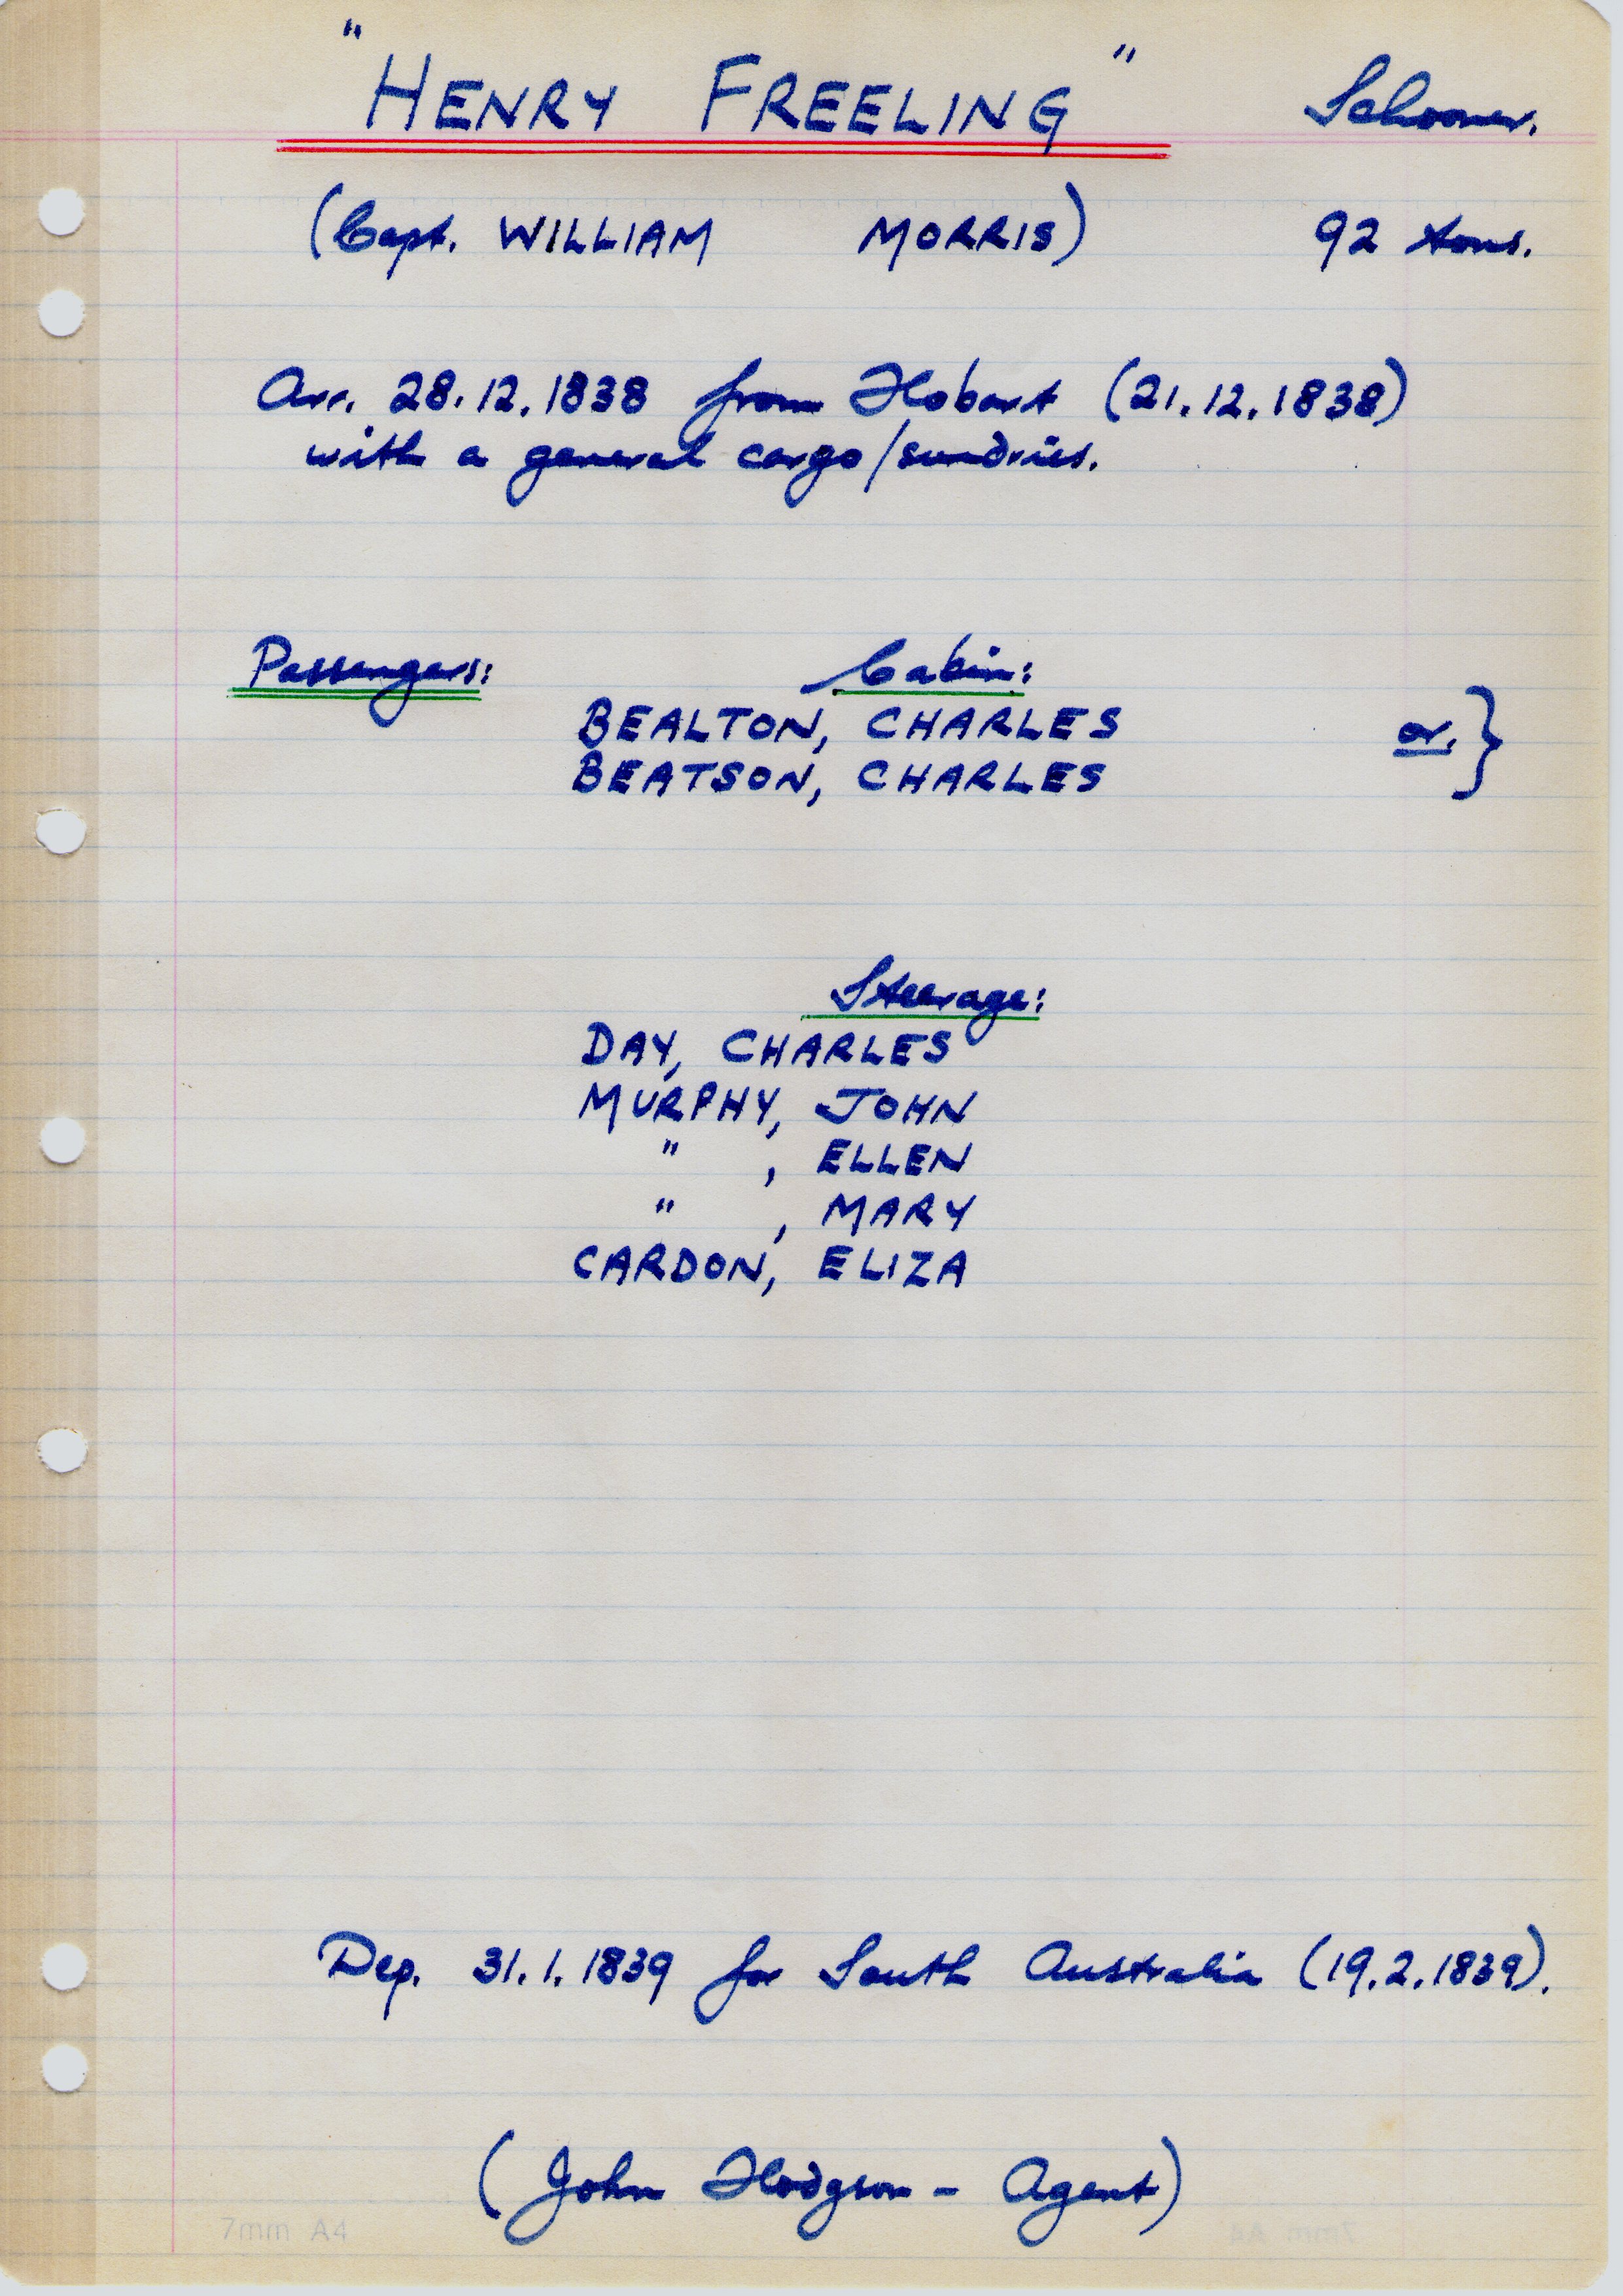 "HENRY FREELING" Schooner.
(Capt. WILLIAM MORRIS) 92 tons.
Arr. 28.12.1838 from Hobart (21.12.1838)
with a general cargo/sundries.
Passengers: Cabin:
BEALTON, CHARLES
or. }
BEATSON, CHARLES
Steerage:
DAY, CHARLES
MURPHY, JOHN
" , ELLEN
" , MARY
CARDON, ELIZA
Dep. 31.1.1839 for South Australia (19.2.1839).
(John Hodgson - Agent)
7mm A4